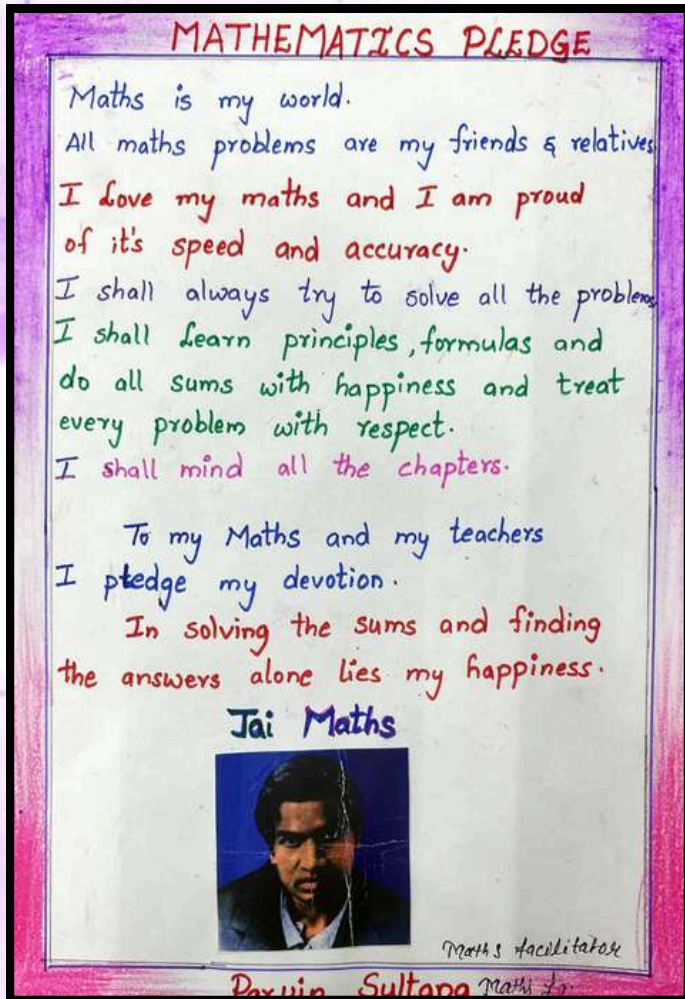 MATHEMATICS PLEDGE
Maths is my world.
All maths problems are my friends & relatives
I Love my maths and I am proud
of it's speed and accuracy.
I shall always try to solve all the problems
I shall Learn principles, formulas and
do all sums with happiness and treat
every problem with respect.
I shall mind all the chapters.
To my Maths and my teachers
I pledge my devotion.
In solving the sums and finding
the answers alone lies my happiness.
Jai Maths
Maths facilitator
Parvin Sultana Maths